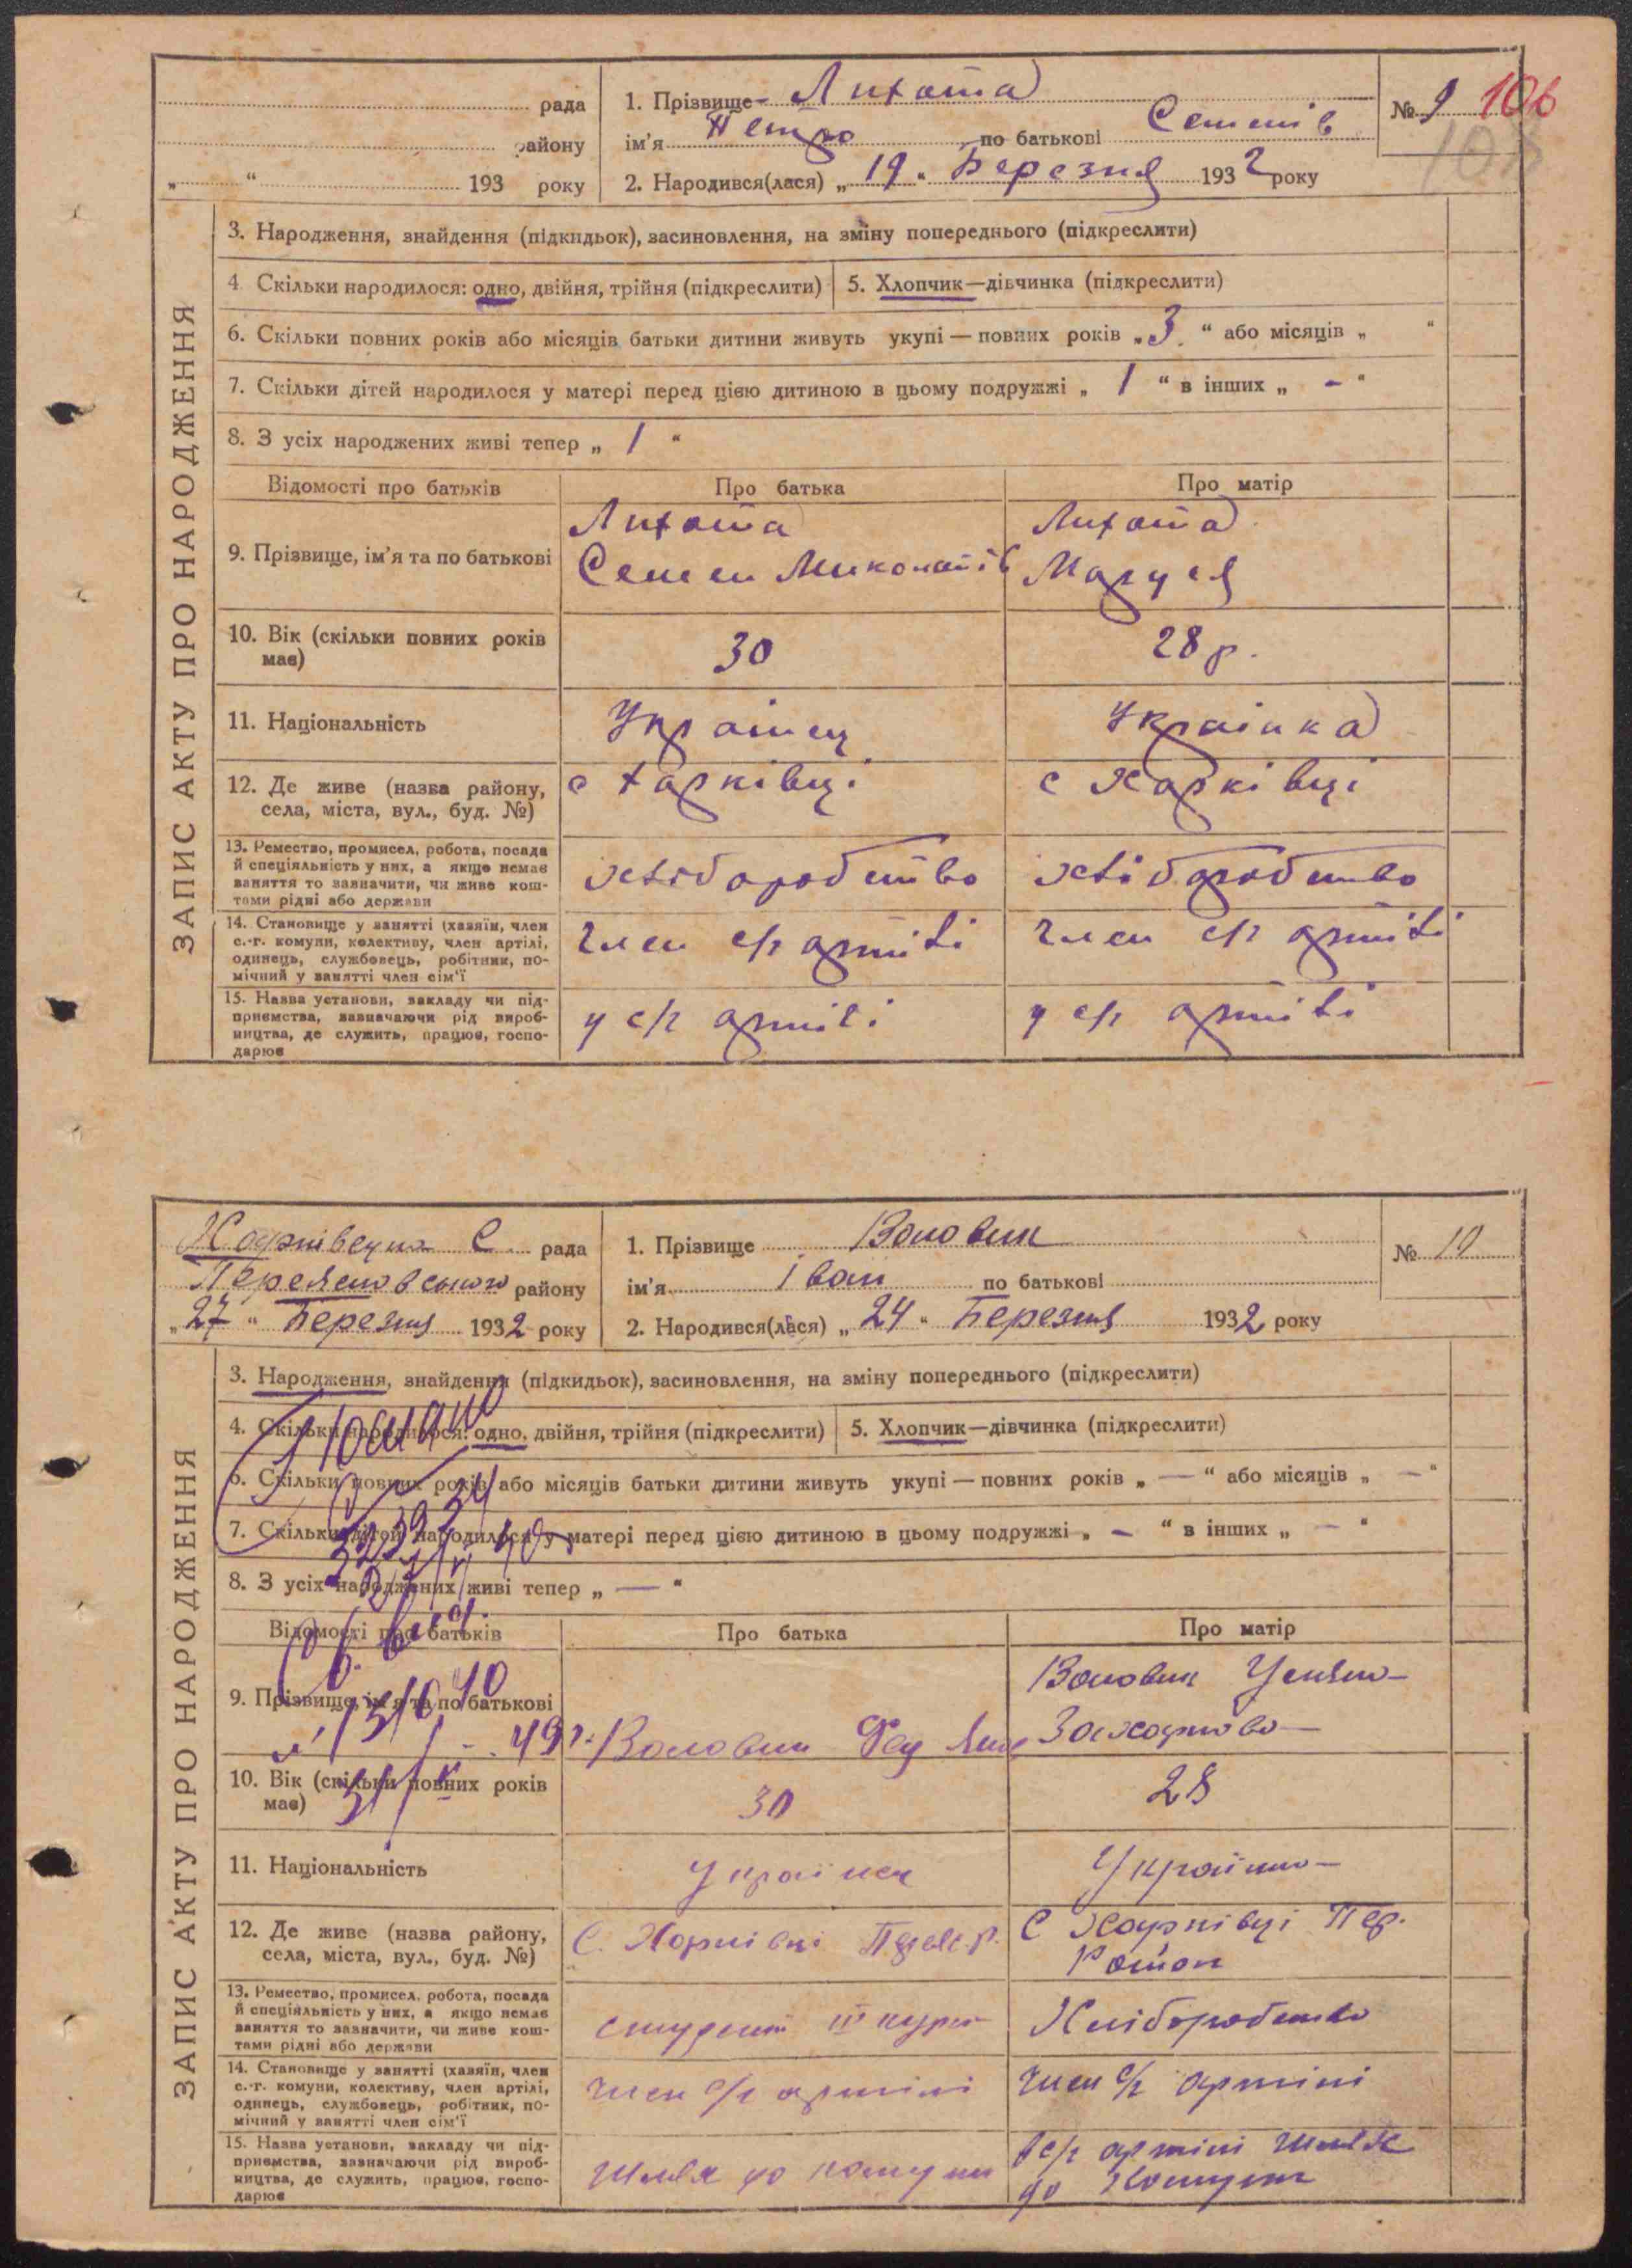 рада
району
„ “ 193 року
1. Прізвище Лихота
ім'я Петро по батькові Семенів
2. Народився(лася) „19“ Березня 1932 року
№ 9 106
108
ЗАПИС АКТУ ПРО НАРОДЖЕННЯ
3. Народження, знайдення (підкидьок), засиновлення, на зміну попереднього (підкреслити)
4. Скільки народилося: одно, двійня, трійня (підкреслити) 5. Хлопчик—дівчинка (підкреслити)
6. Скільки повних років або місяців батьки дитини живуть укупі — повних років „3“ або місяців „ “
7. Скільки дітей народилося у матері перед цією дитиною в цьому подружжі „ 1 “ в інших „ - “
8. З усіх народжених живі тепер „ 1 “
Відомості про батьків Про батька Про матір
9. Прізвище, ім'я та по батькові
Лихота
Семен Миколаїв
Лихота
Маруся
10. Вік (скільки повних років має) 30 28 р.
11. Національність Українец Українка
12. Де живе (назва району, села, міста, вул., буд. №) с Харківці с Харківці
13. Ремество, промисел, робота, посада
й спеціяльність у них, а якщо немає
заняття то зазначити, чи живе кош-
тами рідні або держави
хліборобство хліборобство
14. Становище у занятті (хазяїн, член
с.-г. комуни, колективу, член артілі,
одинець, службовець, робітник, по-
мічний у занятті член сім'ї
член с/г артілі член с/г артілі
15. Назва установи, закладу чи під-
приємства, зазначаючи рід вироб-
ництва, де служить, працює, госпо-
дарює
у с/г артілі у с/г артілі
Харківецька С. рада
Переяславського району
„27“ Березня 1932 року
1. Прізвище Воловик
ім'я Іван по батькові
2. Народився(лася) „24“ Березня 1932 року
№ 10
ЗАПИС АКТУ ПРО НАРОДЖЕННЯ
3. Народження, знайдення (підкидьок), засиновлення, на зміну попереднього (підкреслити)
4. Скільки народилося: одно, двійня, трійня (підкреслити) 5. Хлопчик—дівчинка (підкреслити)
6. Скільки повних років або місяців батьки дитини живуть укупі — повних років „ — “ або місяців „ — “
7. Скільки дітей народилося у матері перед цією дитиною в цьому подружжі „ - “ в інших „ - “
8. З усіх народжених живі тепер „ — “
Відомості про батьків Про батька Про матір
9. Прізвище, ім'я та по батькові
Воловик
Воловик
Захарова
10. Вік (скільки повних років має) 30 28
11. Національність Українец Українка
12. Де живе (назва району, села, міста, вул., буд. №)
С. Харківці Переяс. р.
С Харківці Пер.
Район
13. Ремество, промисел, робота, посада
й спеціяльність у них, а якщо немає
заняття то зазначити, чи живе кош-
тами рідні або держави
студент ІІІ курса Хліборобство
14. Становище у занятті (хазяїн, член
с.-г. комуни, колективу, член артілі,
одинець, службовець, робітник, по-
мічний у занятті член сім'ї
член с/г артілі член с/г артілі
15. Назва установи, закладу чи під-
приємства, зазначаючи рід вироб-
ництва, де служить, працює, госпо-
дарює
Шлях до комуни
в с/г артілі Шлях
до Комуни